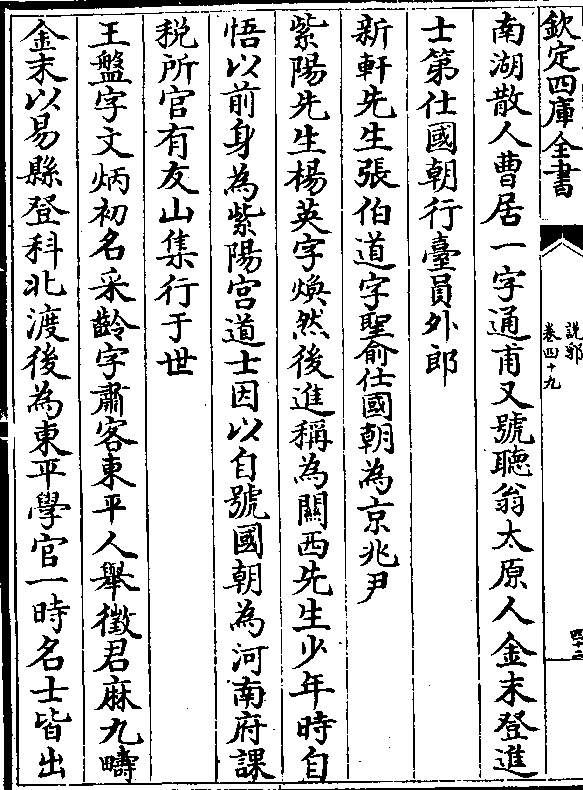 欽定四庫全書
說郛
卷四十九
四十二
南湖散人曹居一字通甫又號聽翁太原人金末登進
士第仕國朝行臺員外郎
新軒先生張伯道字聖俞仕國朝為京兆尹
紫陽先生楊英字煥然後進稱為關西先生少年時自
悟以前身為紫陽宫道士因以自號國朝為河南府課
税所官有友山集行于世
王盤字文炳初名采齡字肅客東平人舉徵君麻九疇
金末以易縣登科北渡後為東平學官一時名士皆出